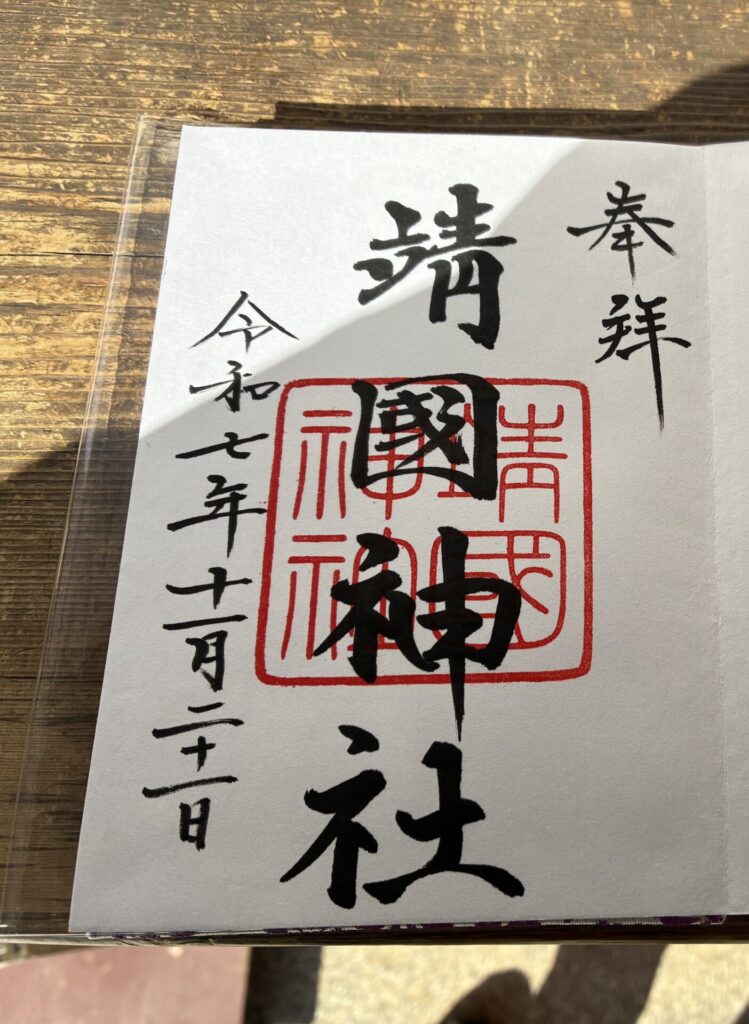 奉拝
靖國神社
靖國
神社
令和七年十一月二十一日